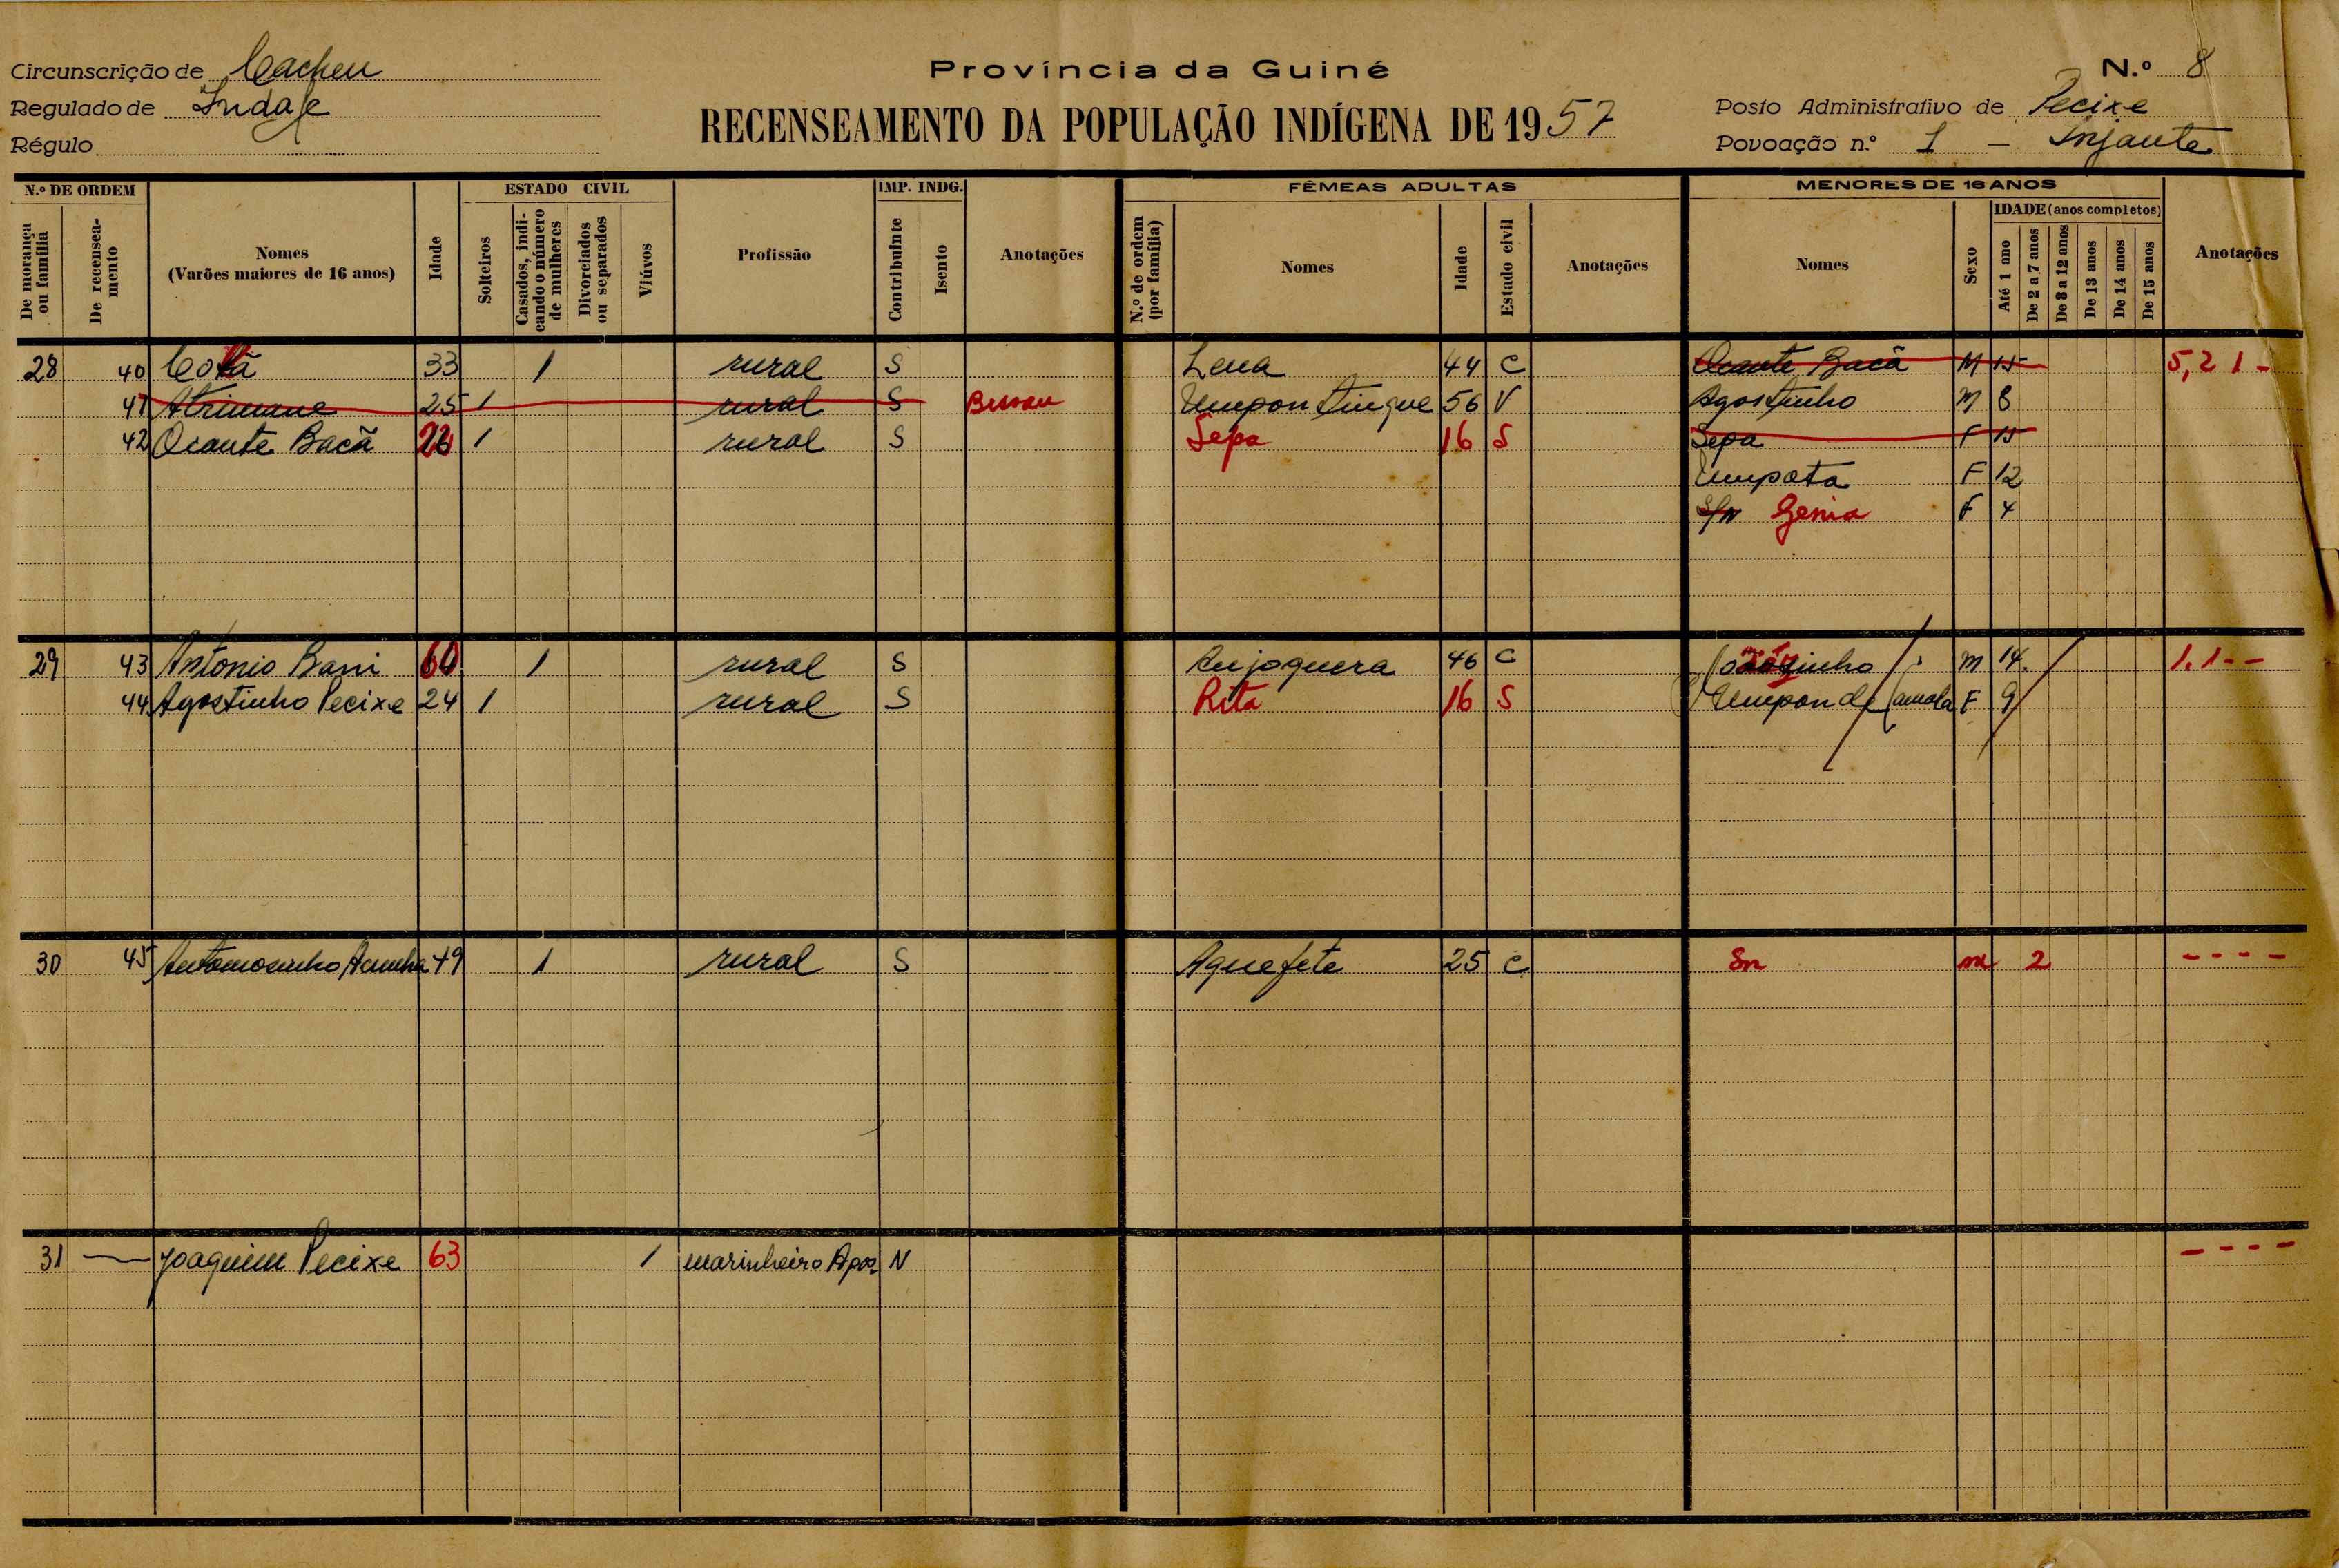 Circunscrição de Cacheu
Regulado de Indafe
Régulo
Província da Guiné
RECENSEAMENTO DA POPULAÇÃO INDÍGENA DE 1957
N.º 8
Posto Administrativo de Pecixe
Povoação n.º 1 — Injante
N.º DE ORDEM
De morança ou família
De recenseamento
Nomes
(Varões maiores de 16 anos)
Idade
ESTADO CIVIL
Solteiros
Casados, indicando o número de mulheres
Divorciados ou separados
Viúvos
Profissão
IMP. INDG.
Contribuinte
Isento
Anotações
FÊMEAS ADULTAS
N.º de ordem (por família)
Nomes
Idade
Estado civil
Anotações
MENORES DE 16 ANOS
Nomes
Sexo
IDADE (anos completos)
Até 1 ano
De 2 a 7 anos
De 8 a 12 anos
De 13 anos
De 14 anos
De 15 anos
Anotações
28 40 33 1 rural S Lena 44 C Ocante Bacã M 15 5, 2 1 -
41 Atrimane 25 1 rural S Bissau Umpontinque 56 V Agostinho M 8
42 Ocante Bacã 1 rural S Sepa 16 S Sepa F 15
Umpata F 12
S/n Genia F 4
29 43 Antonio Bani 1 rural S 46 C M 14 1. 1 - -
44 Agostinho Pecixe 24 1 rural S Rita 16 S Umponde F 9
30 45 49 1 rural S Aquefete 25 C Sn m 2 - - - -
31 — Joaquim Pecixe 63 1 marinheiro Apos. N - - - -